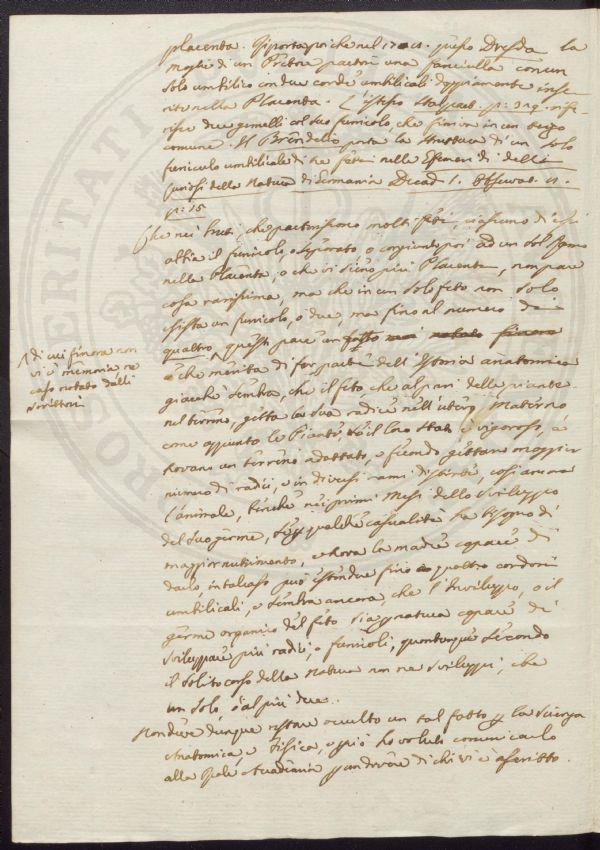 placenta. Riporta poi che nel presso Dresda la
moglie di un Pretore partorì una fanciulla con un
solo umbilico con due corde umbilicali doppiamente inse-
rite nella Placenta. L'istesso rife-
risce due gemelli col suo funicolo, che finiva in un terzo
comune. Il Brendelio porta la struttura di un solo
funiculo umbilicale di tre feti nelle Efemeridi delli
Curiosi della Natura di Germania Decad. 1. Observat. 11.
p: 15
Che nei bruti, che partoriscono molti feti, ciascuno di essi
abbia il funicolo, o separato, o congiunto poi ad un sol
nella Placenta, o che vi sieno più Placente, non pare
cosa rarissima, ma che in un solo feto non solo
esista un funicolo, o due, ma fino al numero di
quattro, questo pare un fatto mai notato finora
di cui finora non
vi è memoria ne
caso notato dalli
scrittori
e che merita di far parte dell'Istoria anatomica
giacchè sembra, che il feto che al pari delle piante
nel terreno, getta la sua radice nell'utero Materno,
come appunto le Piante, se il loro Stato è vigoroso, e
trovano un terreno adattato, e fecondo gettano maggior
numero di radici, e in diversi rami distribuite, così ancora
l'animale, benchè nei primi Mesi dello sviluppo
del suo germe, se p qualche casualità ha bisogno di
maggior nutrimento, e trova la madre capace di
darlo, in tal caso può estendere fino a quattro cordoni
umbilicali, e sembra ancora, che l'Inviluppo, o il
germe organico del feto sia p natura capace di
sviluppare più radici, o funicoli, quantunque secondo
il solito corso della Natura non ne sviluppi, che
un solo, o al più due..
Non deve dunque restare occulto un tal fatto p la Scienza
Anatomica, e Fisica, e p ciò ho voluto comunicarlo
alla Reale Accademia p andare di chi vi è ascritto.